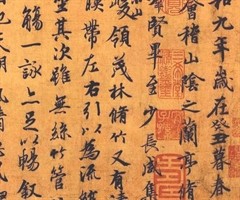 和九年歲在癸丑暮春
會稽山陰之蘭亭脩
羣賢畢至少長咸集
峻領茂林脩竹又有清
暎帶左右引以為流
坐其次雖無絲竹管
觴一詠亦足以暢叙